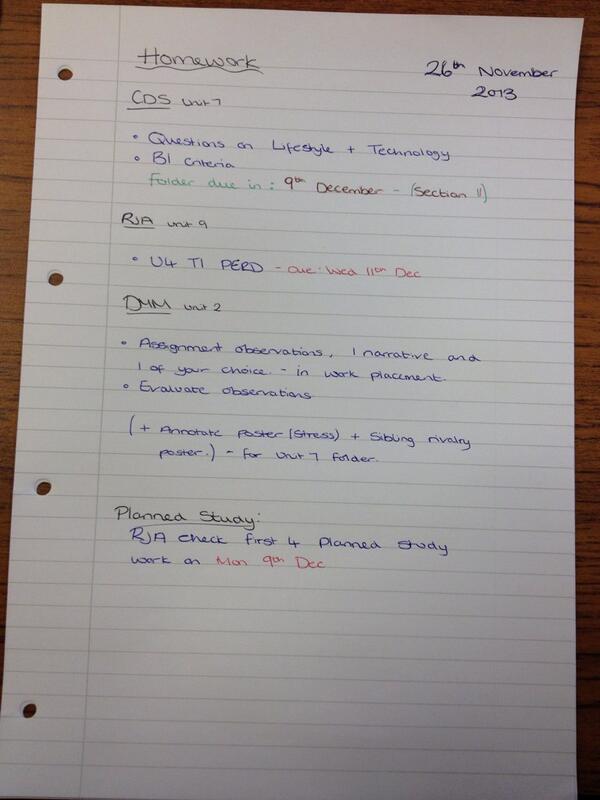 Homework
26th November
2013
CDS unit 7
• Questions on Lifestyle + Technology
• B1 Criteria
Folder due in : 9th December - (Section 11)
RJA unit 9
• U4 T1 PERD - Due: Wed 11th Dec
DMM unit 2
• Assignment observations, 1 narrative and
1 of your choice. - in work placement.
• Evaluate observations
(+ Annotate poster (Stress) + Sibling rivalry
poster.) - for unit 7 folder.
Planned Study:
RJA check first 4 planned study
work on Mon 9th Dec